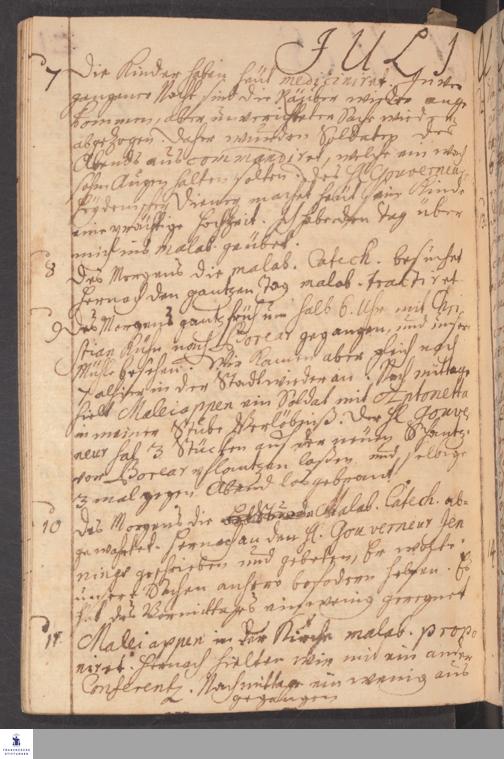 JULI
7 Die Kinder haben heut mediciniret. In ver
gangener Nacht sind die Räuber wieder ange
kommen, aber unverrichteter Sache wieder
abgezogen. Daher wurden Soldaten des
Abends aus commandiret, welche ein wach
sahm Augen halten solten. Des H. Gouverneurs
Diener machet heut sein Kinde
eine Hochzeit. Ich habe den Tag über
mich ins malab. geübet.
8 Des Morgens die malab. Catech. besuchet
hernach den gantzen Tag malab. tractiret
9 Des Morgens gantz früh um halb 6. Uhr mit Chri
stian Kühn nach Porear gegangen, und unsere
Mühle besehen. Wir kamen aber gleich nach
halb in der Stadt wieder an. Nach mittage
hielt Maleiappen ein Soldat mit Antonetta
in meiner Stube Verlöbniß. Der H. Gouver
neur hat 3 Stücken auf der neuen Schantze
von Porear pflantzen laßen und selbige
3 mal gegen Abend losgebrant.
10 Des Morgens die Malab. Catech. ab
gewartet. Hernach an den H. Gouverneur Jen
nings geschrieben und gebeten, Er wolte
unsere Sachen anhero befodern helfen. Es
hat des Vormittages ein wenig geregnet
11 Maleiappen in der Kirche malab. propo
niret. Hernach hielten wir mit ein ander
Conferentz. Nachmittage ein wenig aus
gegangen
FRANCKESCHE STIFTUNGEN